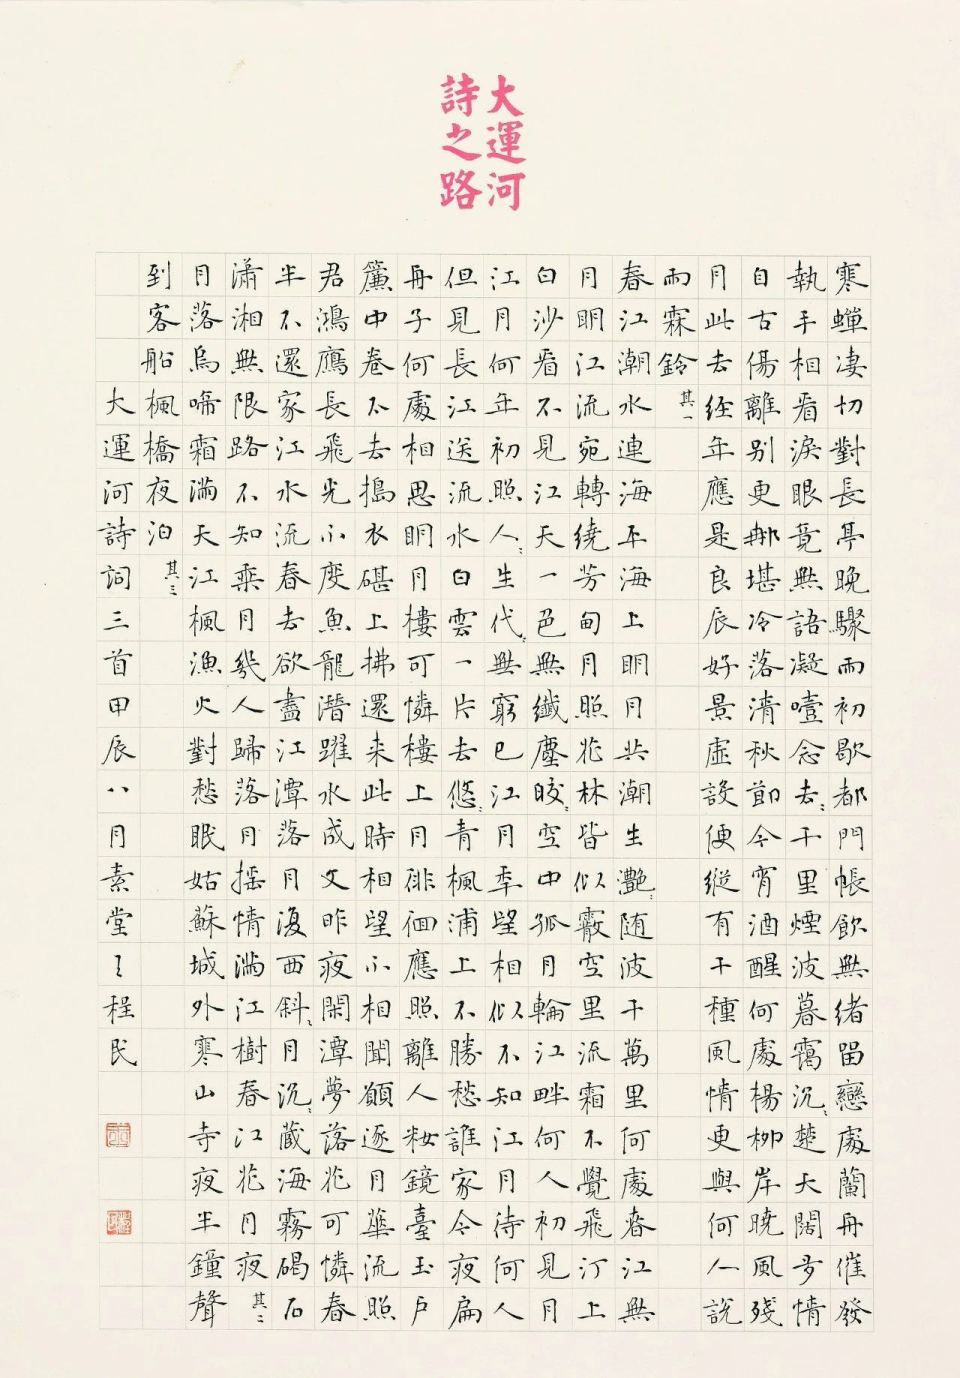 大運河
詩之路
寒蟬凄切對長亭晚驟雨初歇都門帳飲無緒留戀處蘭舟催發
執手相看淚眼竟無語凝噎念去〻千里煙波暮靄沉〻楚天闊多情
自古傷離別更那堪冷落清秋節今宵酒醒何處楊柳岸曉風殘
月此去經年應是良辰好景虛設便縱有千種風情更與何人說
雨霖鈴 其一
春江潮水連海平海上明月共潮生灩〻随波千萬里何處春江無
月明江流宛轉繞芳甸月照花林皆似霰空里流霜不覺飛汀上
白沙看不見江天一色無纖塵皎〻空中孤月輪江畔何人初見月
江月何年初照人〻生代〻無窮已江月年望相似不知江月待何人
但見長江送流水白雲一片去悠〻青楓浦上不勝愁誰家今夜扁
舟子何處相思明月樓可憐樓上月徘徊應照離人妝鏡臺玉戶
簾中卷不去搗衣碪上拂還来此時相望不相聞願逐月華流照
君鴻鴈長飛光不度魚龍潛躍水成文昨夜閑潭夢落花可憐春
半不還家江水流春去欲盡江潭落月復西斜〻月沉〻藏海霧碣石
瀟湘無限路不知乘月幾人歸落月搖情滿江樹春江花月夜 其二
月落烏啼霜滿天江楓漁火對愁眠姑蘇城外寒山寺夜半鐘聲
到客船楓橋夜泊 其三
大運河詩詞三首甲辰八月素堂程民